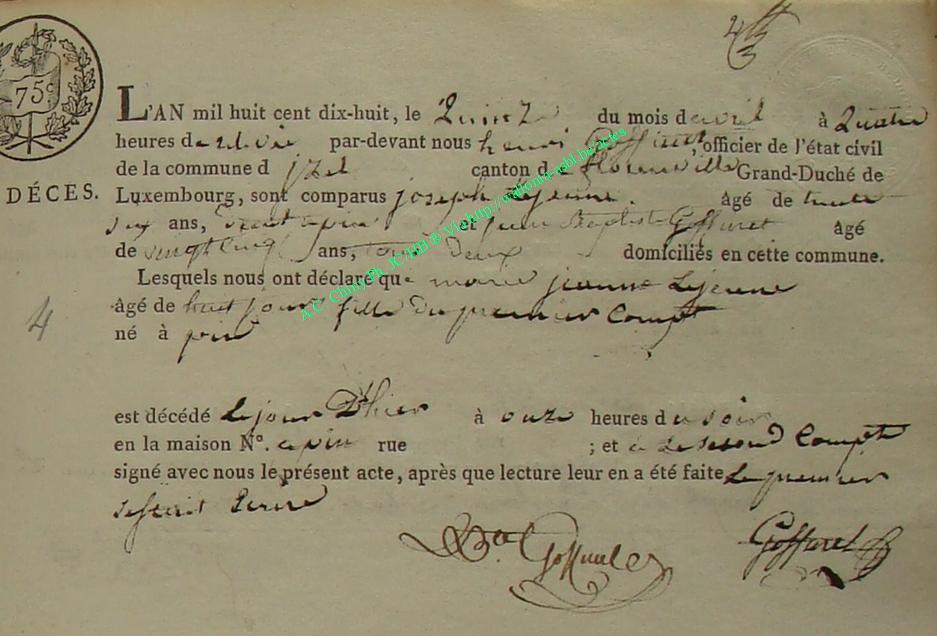 75c
4
L'AN mil huit cent dix-huit, le Quinze du mois d'avril à Quatre
heures de par-devant nous henri Goffinet, officier de l'état civil
de la commune d jzel canton de florenville Grand-Duché de
DÉCES.
Luxembourg, sont comparus joseph Lejeune. âgé de trente
six ans, et jean Baptiste Goffinet âgé
de vingt cinq ans, tous deux domiciliés en cette commune.
Lesquels nous ont déclaré que marie jeanne Lejeune
âgé de huit jour fille du premier Compt
né à pin
est décédé Le jour D'hier à onze heures du soir
en la maison No. a pin rue ; et a Le second Compt
signé avec nous le présent acte, après que lecture leur en a été faite Le premier
A.C. Chiny Ph. JC HB @ Via http://wallonia-asbl.be/actes